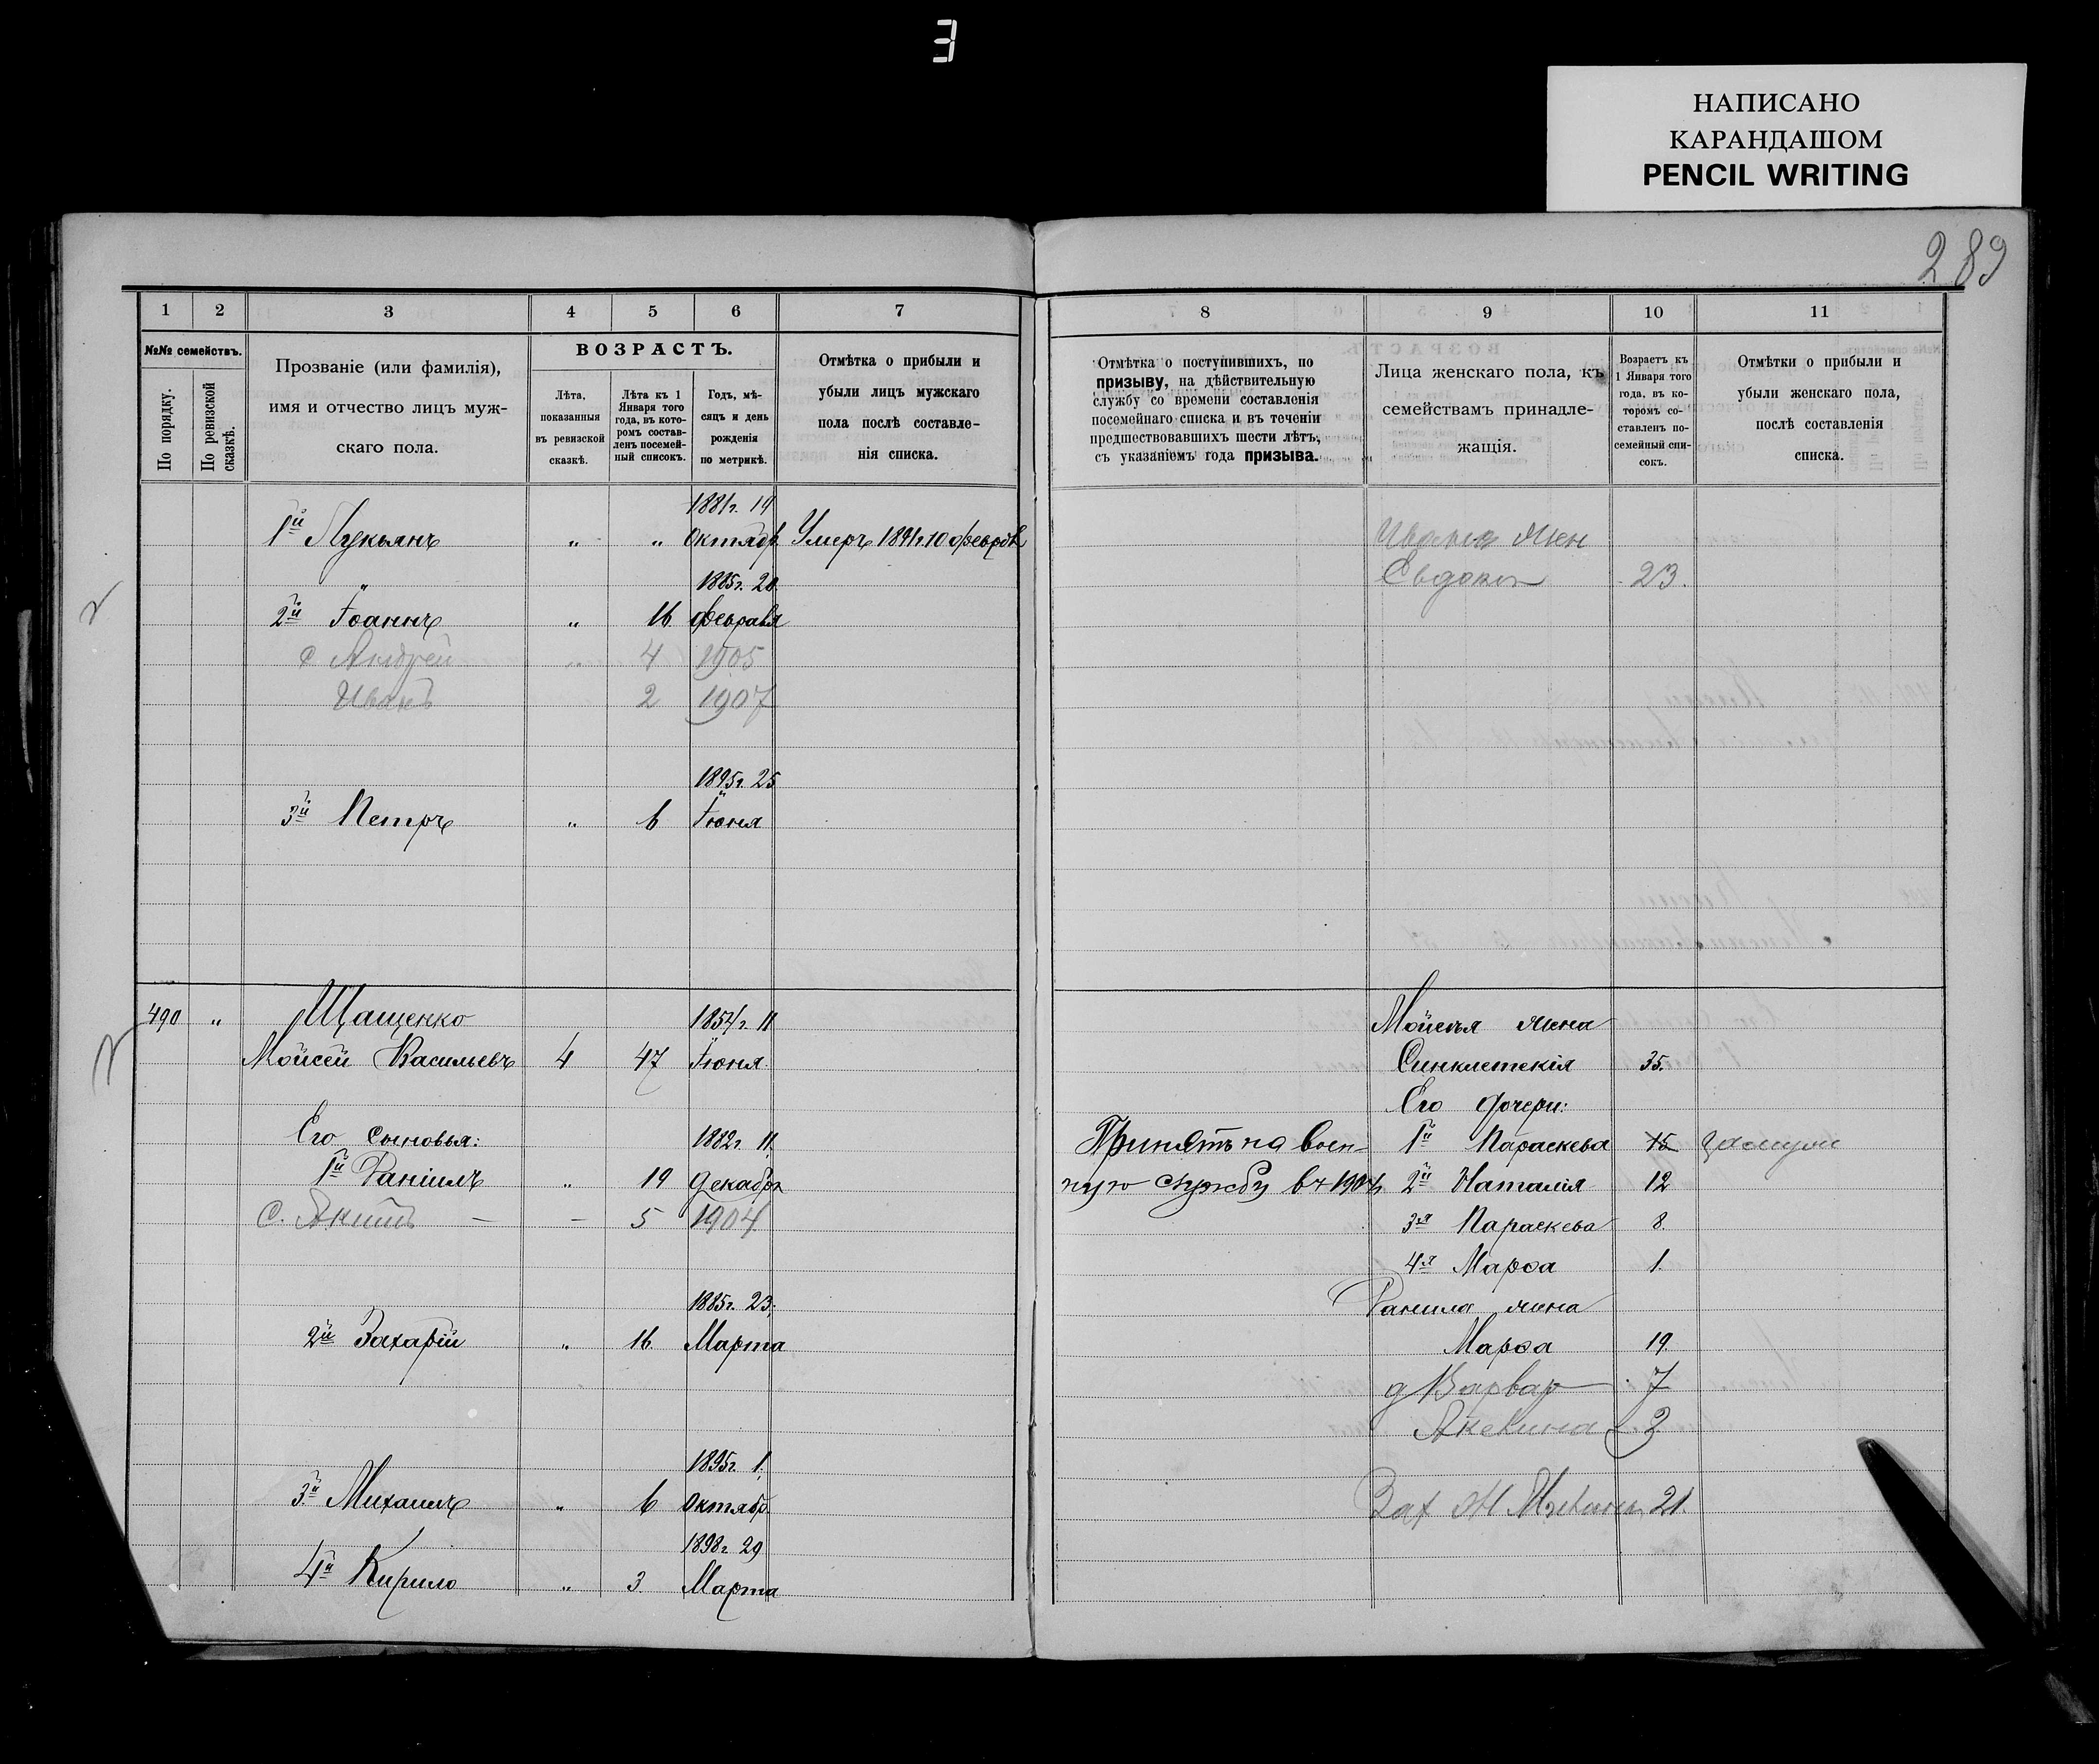 НАПИСАНО
КАРАНДАШОМ
PENCIL WRITING
289
1 2 3 4 5 6 7
№№ семействъ.
По порядку.
По ревизской сказкѣ.
Прозваніе (или фамилія),
имя и отчество лицъ муж-
скаго пола.
ВОЗРАСТЪ.
Лѣта,
показанныя
въ ревизской
сказкѣ.
Лѣта къ 1
Января того
года, въ кото-
ромъ состав-
ленъ посемей-
ный списокъ.
Годъ, мѣ-
сяцъ и день
рожденія
по метрикѣ.
Отмѣтка о прибыли и
убыли лицъ мужскаго
пола послѣ составле-
нія списка.
1881г. 19
1й Лукьянъ " " Октябр. Умеръ 1891г. 10 февраля
1885г. 20.
2й Іоаннъ " 16 февраля
с Андрей " 4 1905
Иванъ 2 1907
1895г. 25
3й Петръ " 6 Іюня
490 " Щащенко 1854г. 11
Мойсей Васильевъ 4 47 Іюня
Его сыновья: 1882г. 11.
1й Даніилъ " 19 декабря
с. Якимъ — — 5 1904
1885г. 23.
2й Захарій " 16 Марта
1895г. 1.
3й Михаилъ " 6 Октябр.
1898г. 29
4й Кирило " 3. Марта
8 9 10 11
Отмѣтка о поступившихъ, по
призыву, на дѣйствительную
службу со времени составленія
посемейнаго списка и въ теченіи
предшествовавшихъ шести лѣтъ,
съ указаніемъ года призыва.
Лица женскаго пола, къ
семействамъ принадле-
жащія.
Возрастъ къ
1 Января того
года, въ ко-
торомъ со-
ставленъ по-
семейный спи-
сокъ.
Отмѣтки о прибыли и
убыли женскаго пола,
послѣ составленія
списка.
Ивана жен
Евдокія 23.
Мойсея жена
Синклетекія 35.
Его дочери:
Принятъ на воен- 1я Параскева 15 замуже
ную службу въ 1904г. 2я Наталія 12
3я Параскева 8.
4я Марѳа 1.
Данила жена
Марѳа 19.
д Варвар 7
Акелина 3
Зах Ж 21.